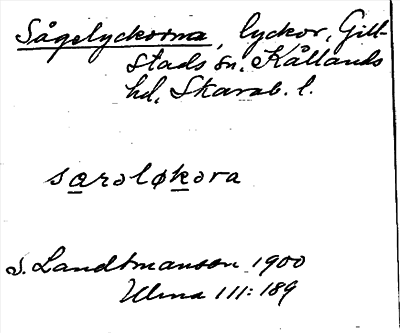 Sågelyckorna, lyckor, Gill-
stads sn, Kållands
hd, Skarab. l.
sarəløkəra
S. Landtmanson 1900
Ulma 111:189